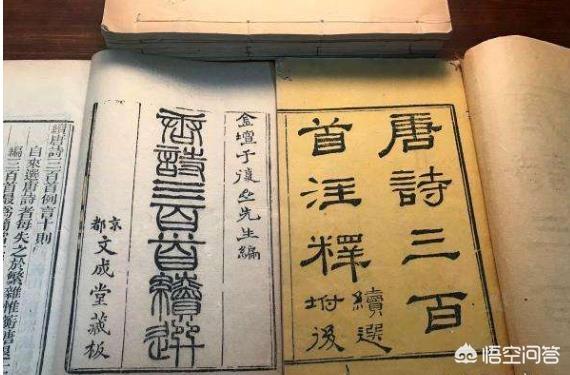 唐詩三百
首注釋
續選
坿後
金壇于復先生編
唐詩三百首續選
京都
文成堂藏板
續唐詩三百首例言十則
自來選唐詩者每失之於繁雜惟蘅塘退
編三百首最
悟空问答